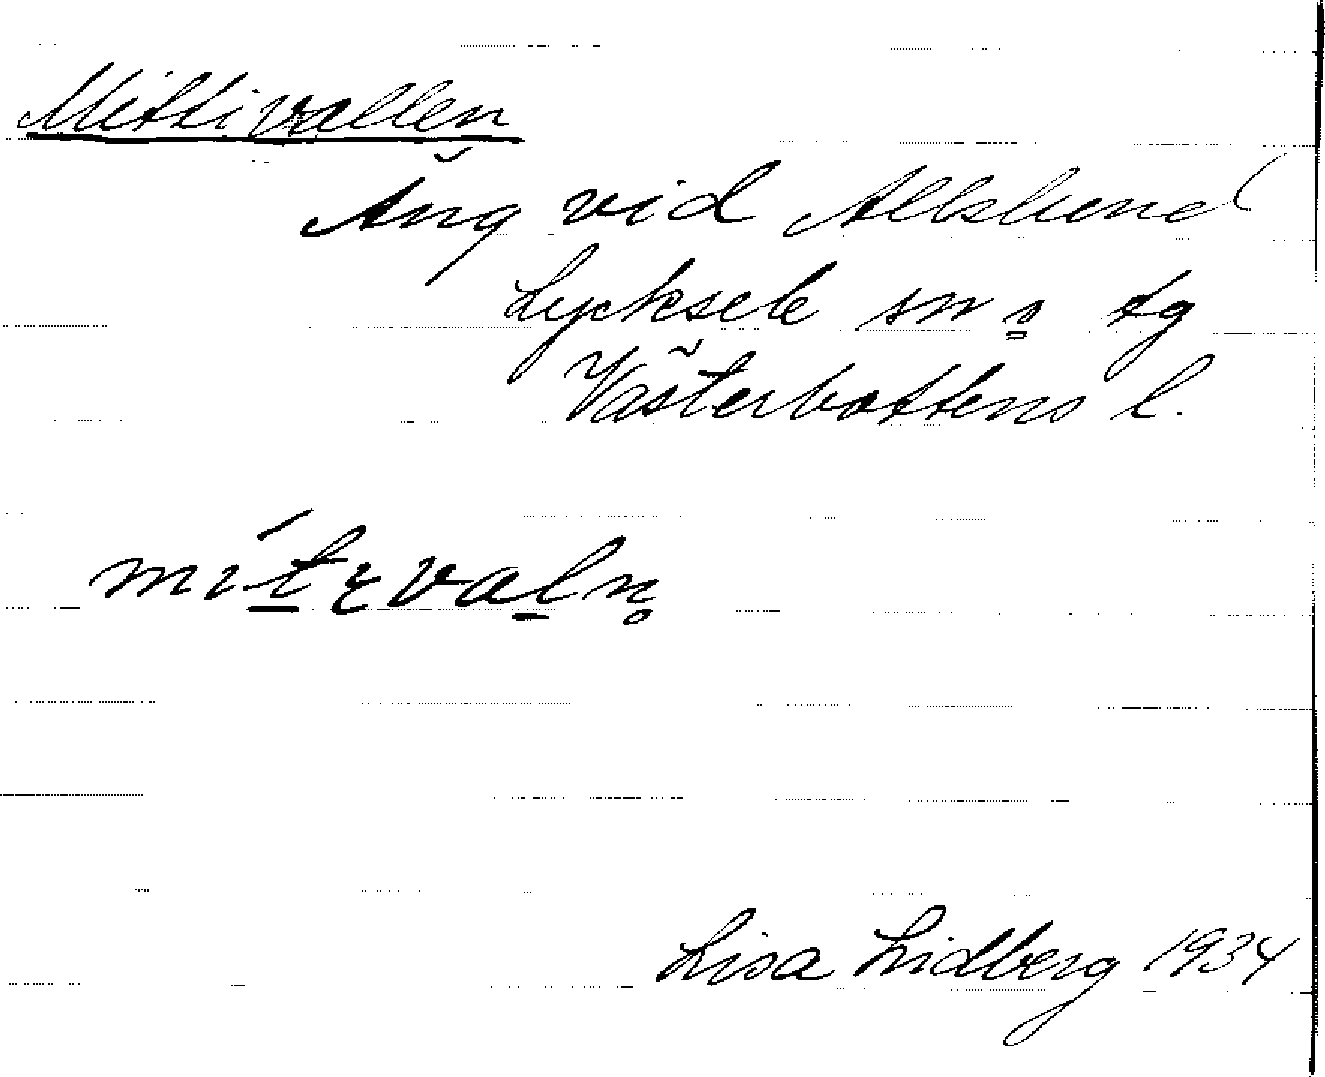 Mittivallen
Äng vid Alskund
Lycksele sn o tg
Västerbottens l.
Lisa Lidberg 1934